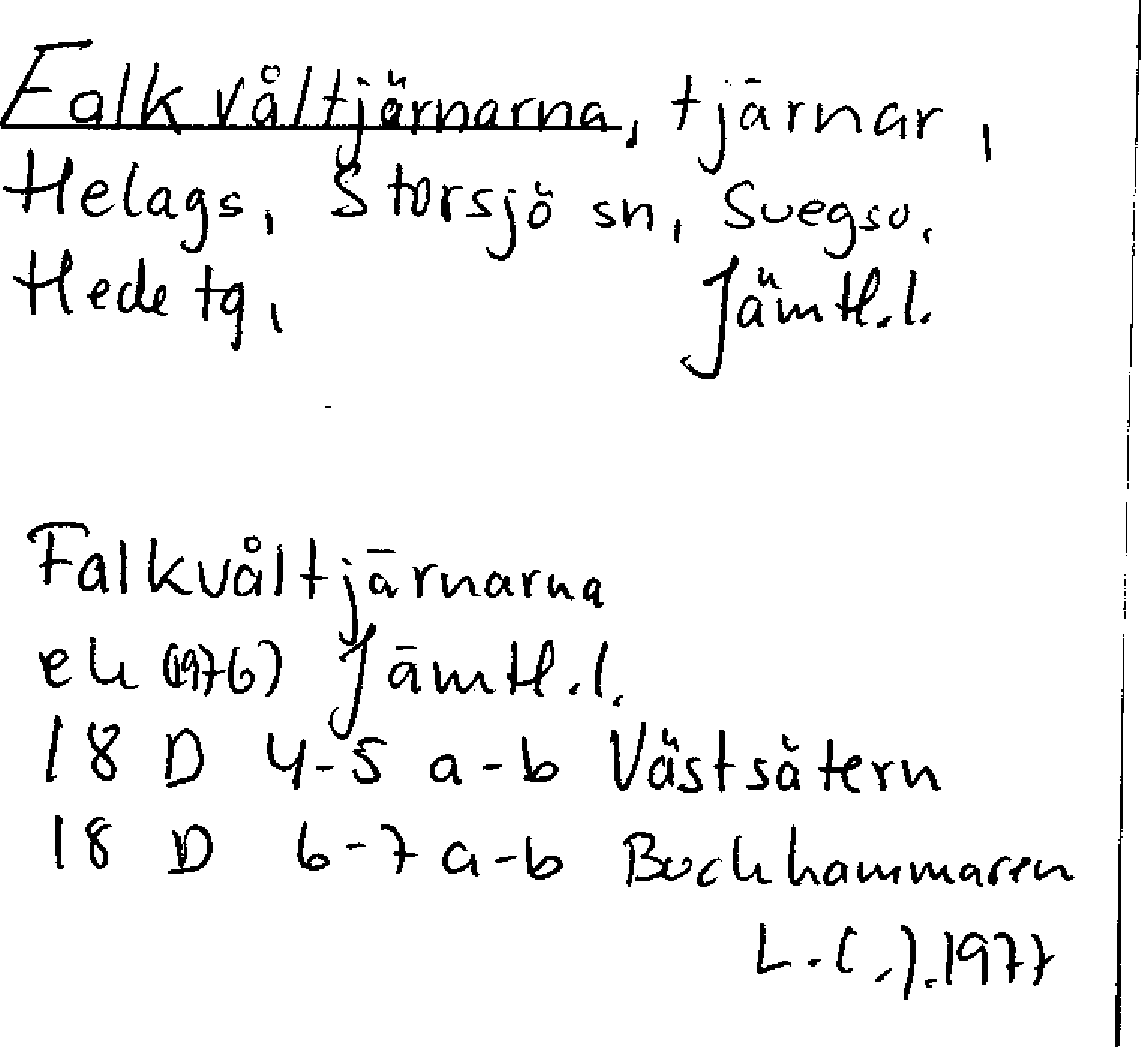 Falkvåltjärnarna, tjärnar,
Helags, Storsjö sn, Svegs o.
Hede tg, Jämtl.l.
Falkvåltjärnarna
ek (1976) Jämtl.l.
18 D 4-5 a-b Västsätern
18 D 6-7 a-b Bockhammaren
1977